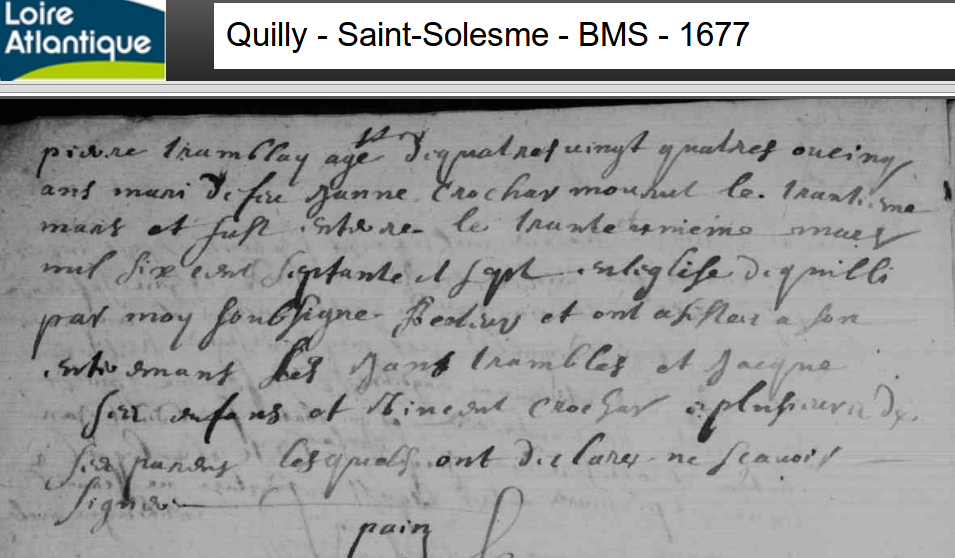 Loire
Atlantique
Quilly - Saint-Solesme - BMS - 1677
pierre tramblay age de quatres uingt quatres ou cinq
ans mari de feu Janne Crochar mourut le trantiesme
mars et fust enterre le trante et mars
mil six cent septante et sept en leglise de quilli
par moy soubsigne et ont asister a son
les Jans trambles et Jacque
ses enfans et Vincent Crochar et plusieurs de
ses parens lesquels ont declarer ne scauoir
signer
pain